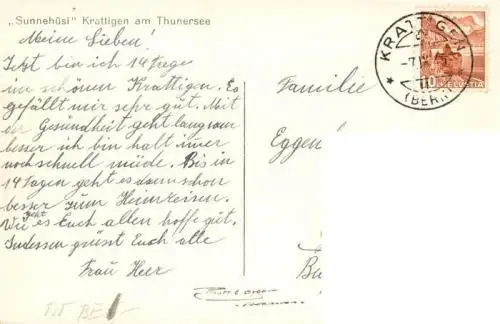 „Sunnehüsi" Krattigen am Thunersee
Meine Lieben!
Jetzt bin ich 14 Tage
im schönen Krattigen. Es
gefällt mir sehr gut. Mit
der Gesundheit geht langsam
besser ich bin halt imer
noch schnell müde. Bis in
14 Tagen geht es dann schon
besser zum Heimreisen.
Wie geht es Euch allen hoffe gut.
Indessen grüsst Euch alle
Frau Heer
Familie
Eggen
KRATTIGEN
(BERN)
HELVETIA
10